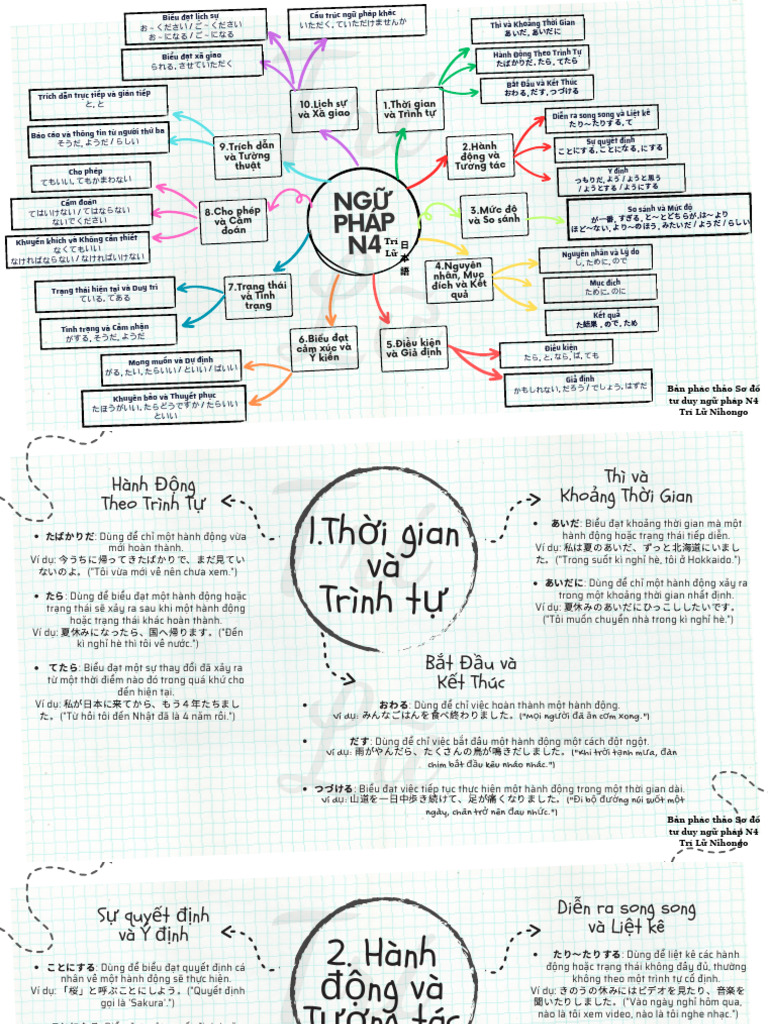 Biểu đạt lịch sự
お～ください / ご～ください
お～になる / ご～になる
Cấu trúc ngữ pháp khác
いただく, ていただけませんか
Biểu đạt xã giao
られる, させていただく
10.Lịch sự
và Xã giao
1.Thời gian
và Trình tự
Thì và Khoảng Thời Gian
あいだ, あいだに
Hành Động Theo Trình Tự
たばかりだ, たら, てたら
Bắt Đầu và Kết Thúc
おわる, だす, つづける
Trích dẫn trực tiếp và gián tiếp
と, と
Báo cáo và thông tin từ người thứ ba
そうだ, ようだ / らしい
9.Trích dẫn
và Tường
thuật
2.Hành
động và
Tương tác
Diễn ra song song và Liệt kê
たり～たりする, て
Sự quyết định
ことにする, ことになる, にする
Ý định
つもりだ, よう / ようと思う
/ ようとする / ようにする
Cho phép
てもいい, てもかまわない
Cấm đoán
てはいけない / てはならない
ないでください
Khuyến khích và Không cần thiết
なくてもいい
なければならない / なければいけない
8.Cho phép
và Cấm
đoán
NGỮ
PHÁP
N4
Trí
Lữ
日
本
語
3.Mức độ
và So sánh
So sánh và Mức độ
が一番, すぎる, と～とどちらが, は～より
ほど～ない, より～のほう, みたいだ / ようだ / らしい
4.Nguyên
nhân, Mục
đích và Kết
quả
Nguyên nhân và Lý do
し, ために, ので
Mục đích
ために, のに
Kết quả
た結果, ので, ため
Trạng thái hiện tại và Duy trì
ている, てある
Tình trạng và Cảm nhận
がする, そうだ, ようだ
7.Trạng thái
và Tình
trạng
6.Biểu đạt
cảm xúc và
Ý kiến
5.Điều kiện
và Giả định
Mong muốn và Dự định
がる, たい, たらいい / といい / ばいい
Khuyên bảo và Thuyết phục
たほうがいい, たらどうですか / たらいい
といい
Điều kiện
たら, と, なら, ば, ても
Giả định
かもしれない, だろう / でしょう, はずだ
Bản phác thảo Sơ đồ
tư duy ngữ pháp N4
Trí Lữ Nihongo
Hành Động
Theo Trình Tự
• たばかりだ: Dùng để chỉ một hành động vừa
mới hoàn thành.
Ví dụ: 今うちに帰ってきたばかりで、まだ見てい
ないのよ。("Tôi vừa mới về nên chưa xem.")
• たら: Dùng để biểu đạt một hành động hoặc
trạng thái sẽ xảy ra sau khi một hành động
hoặc trạng thái khác hoàn thành.
Ví dụ: 夏休みになったら、国へ帰ります。("Đến
kì nghỉ hè thì tôi về nước.")
• てたら: Biểu đạt một sự thay đổi đã xảy ra
từ một thời điểm nào đó trong quá khứ cho
đến hiện tại.
Ví dụ: 私が日本に来てから、もう４年たちまし
た。("Từ hồi tôi đến Nhật đã là 4 năm rồi.")
1.Thời gian
và
Trình tự
Thì và
Khoảng Thời Gian
• あいだ: Biểu đạt khoảng thời gian mà một
hành động hoặc trạng thái tiếp diễn.
Ví dụ: 私は夏のあいだ、ずっと北海道にいまし
た。("Trong suốt kì nghỉ hè, tôi ở Hokkaido.")
• あいだに: Dùng để chỉ một hành động xảy ra
trong một khoảng thời gian nhất định.
Ví dụ: 夏休みのあいだにひっこししたいです。
("Tôi muốn chuyển nhà trong kì nghỉ hè.")
Bắt Đầu và
Kết Thúc
• おわる: Dùng để chỉ việc hoàn thành một hành động.
Ví dụ: みんなごはんを食べ終わりました。("Mọi người đã ăn cơm xong.")
• だす: Dùng để chỉ việc bắt đầu một hành động một cách đột ngột.
Ví dụ: 雨がやんだら、たくさんの鳥が鳴きだしました。("Khi trời tạnh mưa, đàn
chim bắt đầu kêu nháo nhác.")
• つづける: Biểu đạt việc tiếp tục thực hiện một hành động trong một thời gian dài.
Ví dụ: 山道を一日中歩き続けて、足が痛くなりました。("Đi bộ đường núi suốt một
ngày, chân trở nên đau nhức.")
Bản phác thảo Sơ đồ
tư duy ngữ pháp N4
Trí Lữ Nihongo
Sự quyết định
và Ý định
• ことにする: Dùng để biểu đạt quyết định cá
nhân về một hành động sẽ thực hiện.
Ví dụ: 「桜」と呼ぶことにしよう。("Quyết định
gọi là 'Sakura'.")
2. Hành
động và
Tương tác
Diễn ra song song
và Liệt kê
• たり～たりする: Dùng để liệt kê các hành
động hoặc trạng thái không đầy đủ, thường
không theo một trình tự cố định.
Ví dụ: きのうの休みにはビデオを見たり、音楽を
聞いたりしました。("Vào ngày nghỉ hôm qua,
nào là tôi xem video, nào là tôi nghe nhạc.")